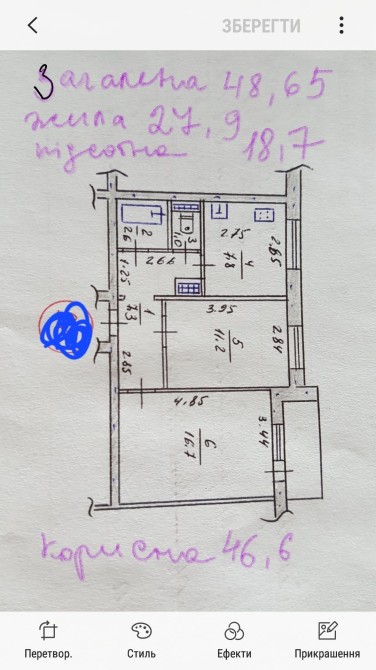 ЗБЕРЕГТИ
Загалена 48,65
жила 27,9
підсобна 18,7
2
2.6
3
1,0
2.75
4
7.8
2.65
1.25
2.66
1
7.3
3.95
5
11.2
2.84
2.85
4.85
6
16.7
3.44
Корисна 46,6
Перетвор. Стиль Ефекти Прикрашення